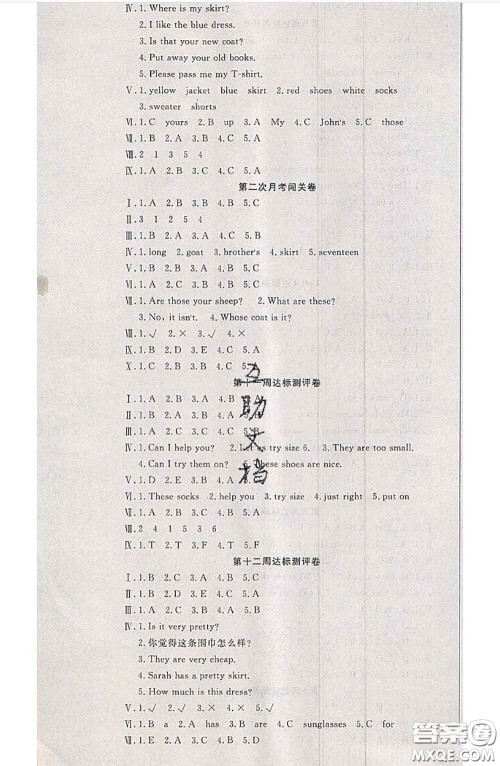 Ⅳ. 1. Where is my skirt?
2. I like the blue dress.
3. Is that your new coat?
4. Put away your old books.
5. Please pass me my T-shirt.
Ⅴ. 1. yellow jacket blue skirt 2. red shoes white socks
3. sweater shorts
Ⅵ. 1. C yours 2. B up 3. A My 4. C John's 5. C those
Ⅶ. 1. B 2. A 3. B 4. C 5. A
Ⅷ. 2 1 3 5 4
Ⅸ. 1. A 2. B 3. A 4. C 5. B
第二次月考闯关卷
Ⅰ. 1. B 2. B 3. A 4. C 5. C
Ⅱ. 3 1 2 5 4
Ⅲ. 1. A 2. C 3. A 4. C 5. B
Ⅳ. 1. long 2. goat 3. brother's 4. skirt 5. seventeen
Ⅴ. 1. B 2. A 3. B 4. B 5. C
Ⅵ. 1. B 2. A 3. A 4. B 5. C
Ⅶ. 1. Are those your sheep? 2. What are these?
3. No, it isn't. 4. Whose coat is it?
Ⅷ. 1. √ 2. × 3. √ 4. ×
Ⅸ. 1. B 2. D 3. E 4. C 5. A
Ⅹ. 1. C 2. B 3. A 4. B 5. A
第十一周达标测评卷
Ⅰ. 1. A 2. B 3. A 4. B
Ⅱ. 1. A 2. B 3. A 4. C
Ⅲ. 1. B 2. C 3. A 4. C 5. A
Ⅳ. 1. Can I help you? 2. Let us try size 6. 3. They are too small.
4. Can I try them on? These shoes are nice.
Ⅴ. 1. D 2. C 3. B 4. E 5. A
Ⅵ. 1. These socks 2. help you 3. try size 4. just right 5. put on
Ⅶ. 1. C 2. B 3. A 4. B 5. A
Ⅷ. 2 4 1 5 3 6
Ⅸ. 1. T 2. F 3. T 4. T 5. F
互助文档
第十二周达标测评卷
Ⅰ. 1. B 2. C 3. A 4. B 5. C
Ⅱ. 1. B 2. A 3. B 4. A 5. B
Ⅲ. 1. A 2. C 3. A 4. B 5. C
Ⅳ. 1. Is it very pretty?
2. 你觉得这条围巾怎么样?
3. They are very cheap.
4. Sarah has a pretty skirt.
5. How much is this dress?
Ⅴ. 1. √ 2. × 3. √ 4. × 5. √
Ⅵ. 1. B a 2. A has 3. B are 4. C sunglasses 5. C for
Ⅶ. 1. E 2. D 3. A 4. C 5. B
答案圈
MXQE.COM